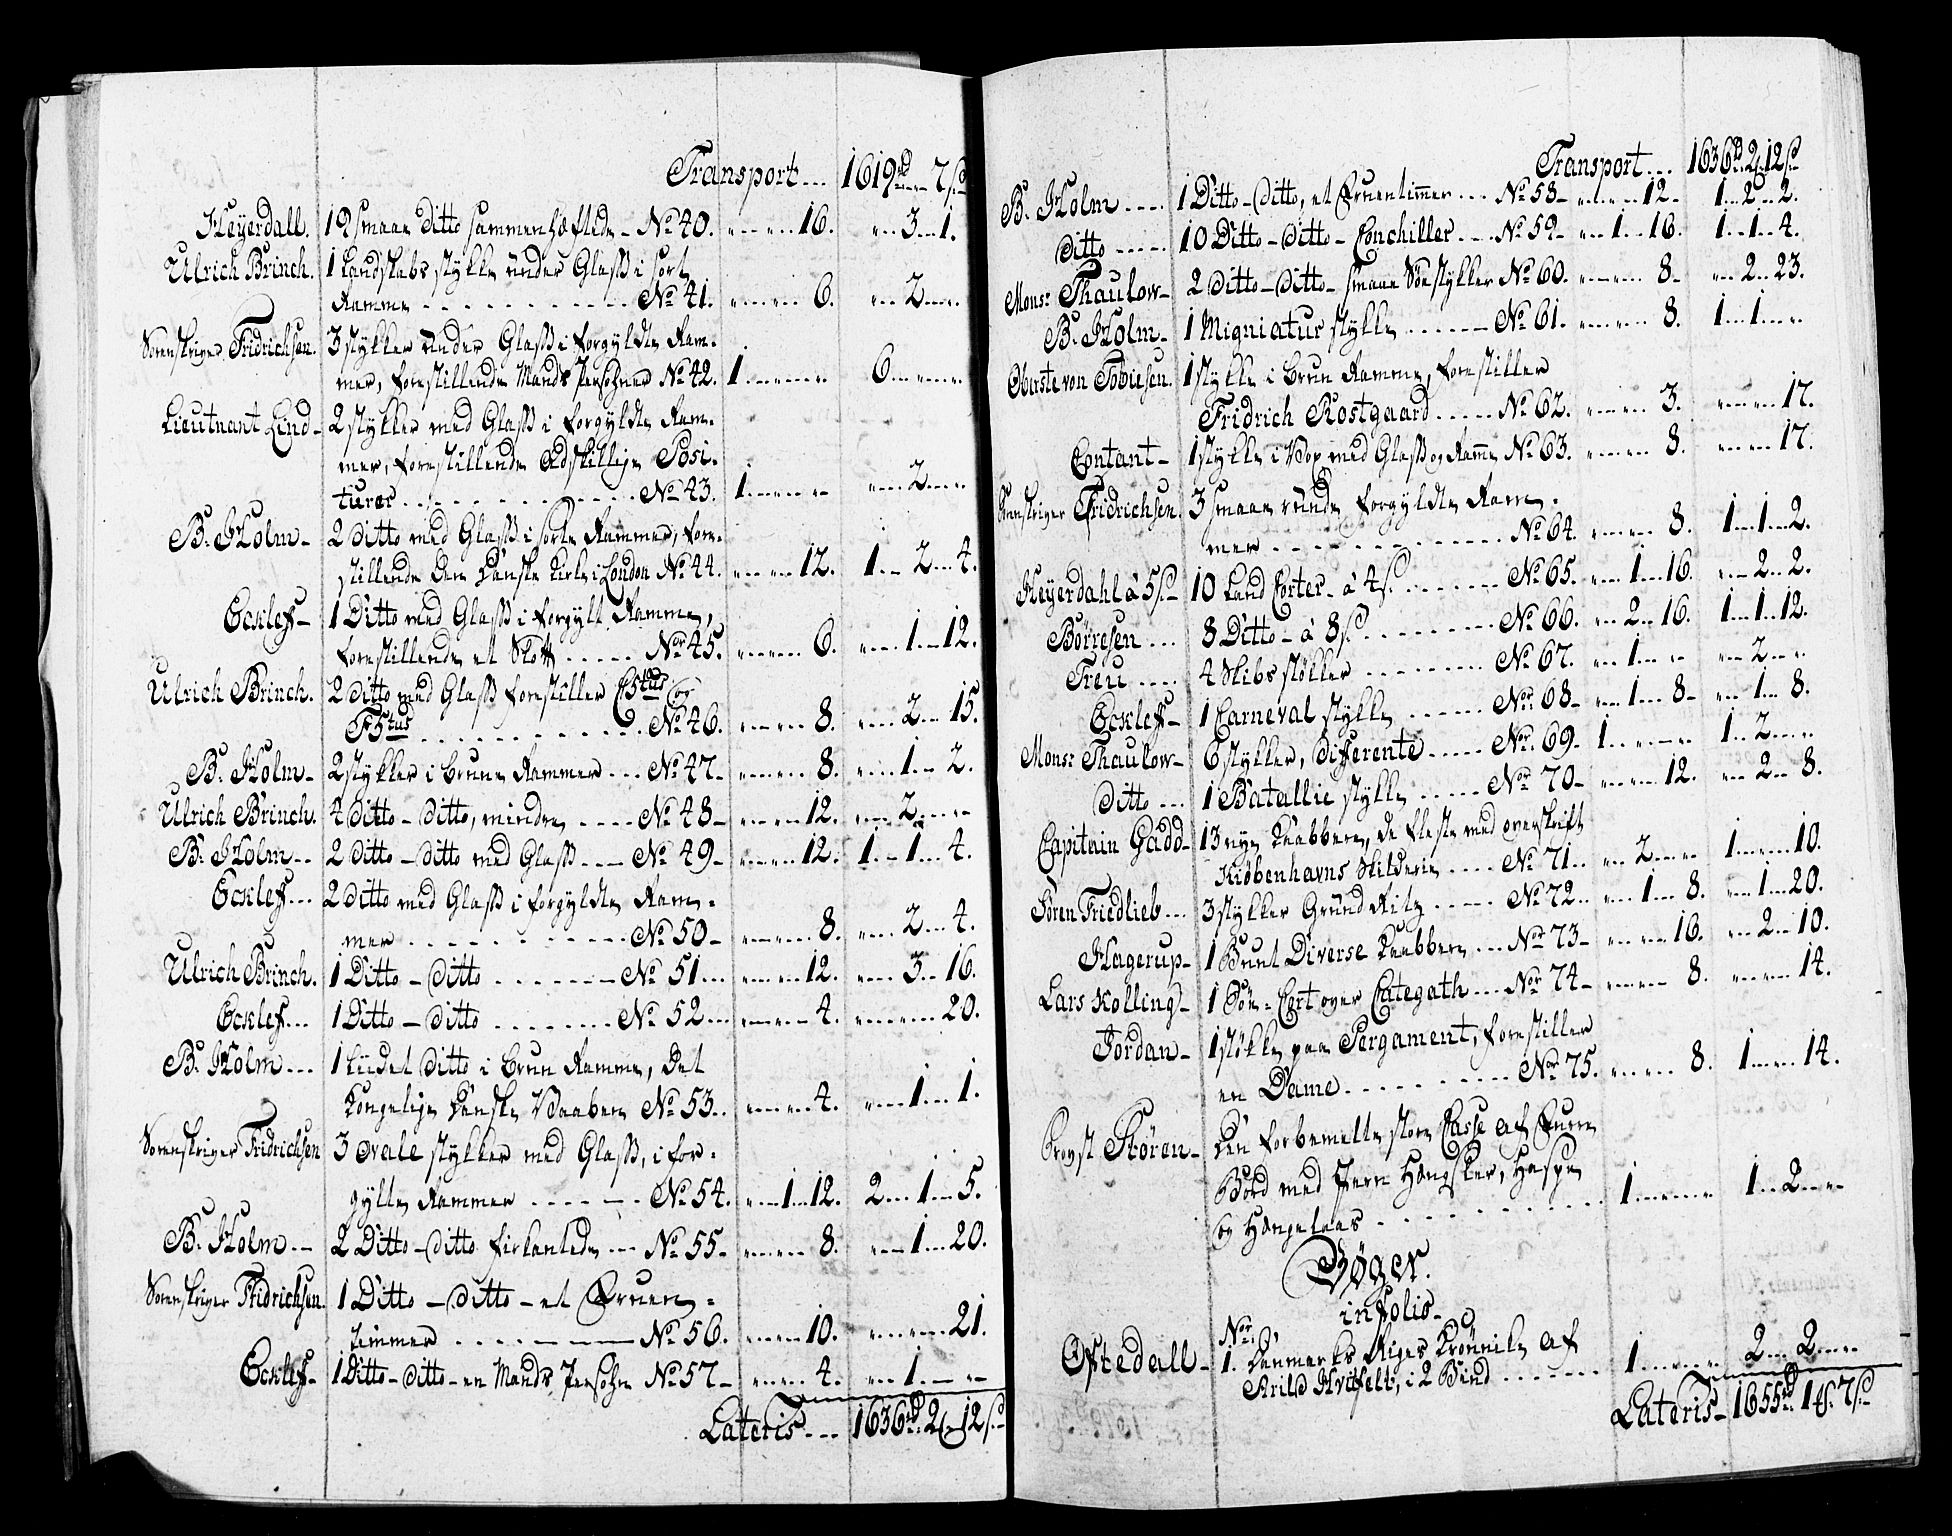 Transport... 1619rd „ 7sk
Heyerdall. 19 smaae ditto sammenhæftede - No 40. „ „ 16. „ 3 „ 1.
Ulrich Brinch. 1 Landskabs stykke under Glass i sort
Ramme . . . No 41. „ „ 6. „ 2 „ „
Sorenskriver Fridrichsen. 3 stykker under Glass i forgyldte Ram-
mer, forestillende Mands Persohner No 42. 1 „ „ 6 „ „
Lieutnant Lind- 2 stykker med Glass i forgyldte Ram-
mer, forestillende Adskillige Posi-
turer . . . No 43. 1 „ „ „ 2 „ „
B. Holm- 2 ditto med Glass i sorte Rammer, fore-
stillende den danske Kirke i London No 44. „ „ 12. 1 „ 2 „ 4.
Eckleff- 1 Ditto med Glass i forgylt Ramme,
forestillende et Slott . . . Nor 45. „ „ 6. „ 1 „ 12.
Ulrich Brinch. 2 ditto med Glass forestiller C5tus og
F5tus . . . No 46. „ „ 8. „ 2 „ 15.
B. Holm- 2 stykker i brune Rammer ... No 47- „ „ 8. „ 1 „ 2.
Ulrich Brinch. 4 ditto - ditto, mindre .... No 48- „ „ 12. „ 2 „ „
B. Holm-- 2 ditto - ditto med Glass ... No 49- „ „ 12. 1 „ 1 „ 4.
Eckleff... 2 ditto med Glass i forgyldte Ram-
mer . . . No 50- „ „ 8. „ 2 „ 4.
Ulrich Brinch. 1 Ditto - ditto . . . No 51... „ „ 12. „ 3 „ 16.
Eckleff... 1 Ditto - ditto . . . No 52... „ „ 4. „ „ 20.
B. Holm... 1 lidet ditto i brun Ramme, det
Kongelige danske Vaaben No 53.. „ „ 4. „ 1 „ 1.
Sorenskriver Fridrichsen 3 ovale stykker med Glass, i for-
gylte Rammer . . . No 54. „ 1 „ 12. 2 „ 1 „ 5.
B. Holm-- 2 Ditto - ditto firkantede ... No 55- „ „ 8. „ 1 „ 20.
Sorenskriver Fridrichsen. 1 Ditto - ditto - et Fruen-
timmer . . . No 56. „ „ 10. „ „ 21.
Eckleff- 1 Ditto - ditto - en Mands Persohn No 57- „ „ 4. „ 1 „ „
Lateris... 1636rd 2 „ 12sk
Transport... 1636rd 2 „ 12sk
B. Holm.... 1 Ditto - ditto, et Fruentimmer ... No 58- „ „ 12- 1 „ 2 „ 2.
ditto ..... 10 Ditto - ditto - Conchiller .... No 59- „ 1 „ 16. 1 „ 1 „ 4.
Monsr Thaulow- 2 ditto - ditto - smaae Søestykker No 60. „ „ 8- „ 2 „ 23.
B. Holm- 1 Migniatur stykke ..... No 61. „ „ 8. 1 „ 1 „ „
Oberste von Tobiesen. 1 stykke i brun Ramme, forestiller
Fridrich Rostgaard ..... No 62. „ „ 3. „ „ 17.
Contant- 1 stykke i Vox med Glass og Ramme No 63. „ „ 8. „ „ 17.
Sorenskriver Fridrichsen. 3 smaae runde forgyldte Ram-
mer . . . No 64. „ „ 8. 1 „ 1 „ 2.
Heyerdahl à 5sk 10 Land Corter - à 4s. . . . No 65. „ 1 „ 16. „ 2 „ 2.
Börresen.... 8 Ditto - à 8sk . . . No 66. „ 2 „ 16. 1 „ 1 „ 12.
Treu.... 4 Skibs støkker . . . No 67. „ 1 „ „ „ 2 „ „
Eckleff- 1 Carneval stykke . . . Nor 68- „ 1 „ 8- „ 1 „ 8.
Monsr Thaulow- 6 stykker, differente ..... Nor 69. 1 „ „ 1 „ 2 „ „
ditto... 1 Batallie stykke ..... Nor 70- „ „ 12. „ 2 „ 8.
Capitain Gadd- 13 nye Kaabbere, de fleste med overskrift
Kiöbenhavns Skilderie .... No 71.. „ 2 „ „ 1 „ „ 10.
Sören Friedlieb... 3 stykker Grund Ritz ..... No 72.. „ 1 „ 8. „ 1 „ 20.
Hagerup- 1 Bunt Diverse Kaabbere ... Nor 73- „ „ 16. „ 2 „ 10.
Lars Kolling- 1 Søe-Cort over Categath ... Nor 74- „ „ 8. „ „ 14.
Jordan- 1 støkke paa Pergament, forestiller
en Dame . . . Nor 75. „ „ 8. 1 „ „ 14.
Provst Stören- den forbemelte store Casse af Furre
Bord med Jern Hængsler, Haspe
og Hængelaas . . . 1 „ „ „ 1 „ 2 „ „
Bøger.
in folio-
Nor
Oftedall- 1. Danmarks Riges Krönnike af
Arild Hvitfelt, i 2 Bind . . . 1 „ „ 2 „ 2 „ „
Lateris- 1655rd 1 „ 7sk